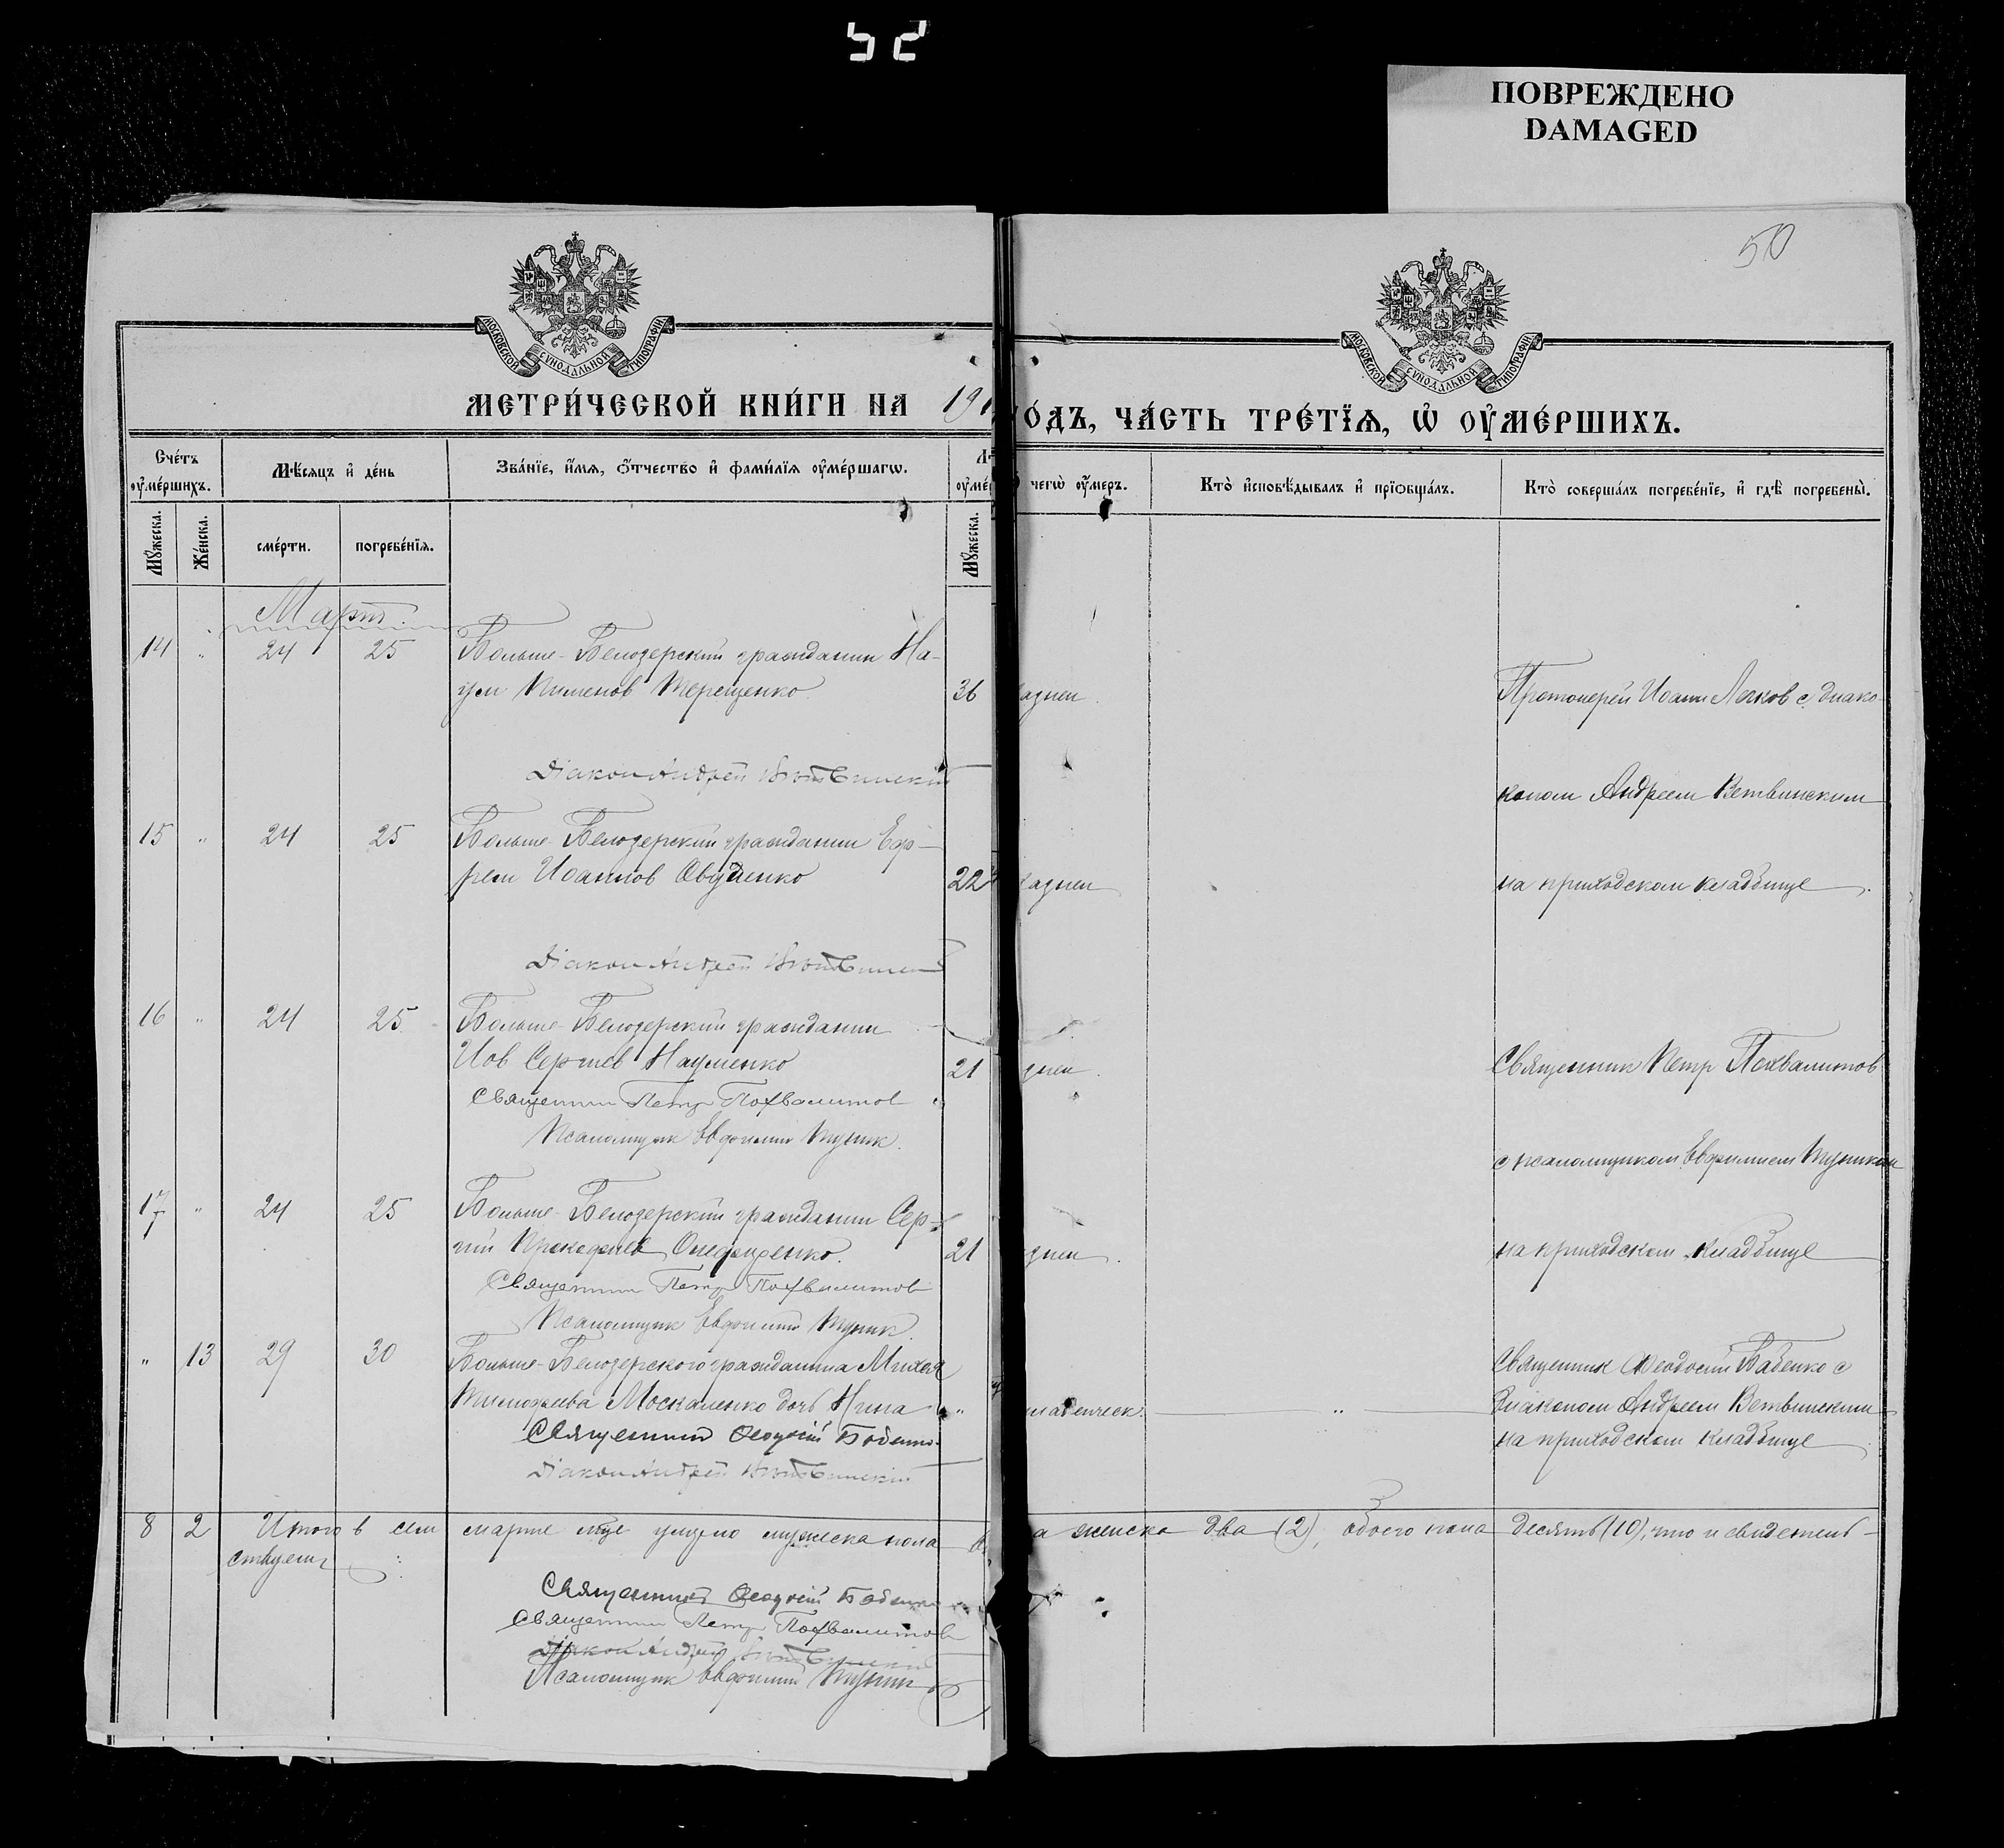 52
ПОВРЕЖДЕНО
DAMAGED
50
МОСКОВСКОЙ СѴНОДАЛЬНОЙ ТИПОГРАФІИ
МОСКОВСКОЙ СѴНОДАЛЬНОЙ ТИПОГРАФІИ
МЕТРИ́ЧЕСКОЙ КНИ́ГИ НА 191
О́ДЪ, ЧА́СТЬ ТРЕ́ТЇѦ, Ѡ҆ ОУ҆МЕ́РШИХЪ.
Сче́тъ оу҆ме́ршихъ.
Мѣ́сяцъ и҆ де́нь
Зва́нїе, и҆́мя, ѻ҆́тчество и҆ фами́лїя оу҆ме́ршагѡ.
чегѡ̀ оу҆́меръ.
Кто̀ и҆сповѣ́дывалъ и҆ прїѡбща́лъ.
Кто̀ соверша́лъ погребе́нїе, и҆ гдѣ̀ погребены̀.
Мꙋ́жеска.
Же́нска.
сме́рти.
погребе́нїя.
Мꙋ́жеска.
Март.
14 " 24 25 Больше-Белозерский гражданин На-
ум Пименов Терещенко 36
Протоиерей Иоанн Легков с диако-
Діакон Андрей Вѣтвинскій
коном Андреем Ветвинским
15 " 24 25 Больше-Белозерский гражданин Еф-
рем Иоаннов Овдиенко 22
на приходском кладбище.
Діакон Андрей Вѣтвинскій
16 " 24 25 Больше-Белозерский гражданин
Иов Сергиев Науменко 21
Священник Петр Похвалитов
Священник Петр Похвалитов
Псаломщик Евфимий Тупик.
с псаломщиком Евфимием Тупиком
17 " 24 25 Больше-Белозерский гражданин Сер-
гий 21
на приходском кладбище
Священник Петр Похвалитов
Псаломщик Евфимий Тупик.
" 13 29 30 Больше-Белозерского гражданина Михея
Тимофеева Москаленко дочь Нина "
младенческ. "
Священник Феодосий Бабенко с
диаконом Андреем Ветвинским
на приходском кладбище
Священник Феодосій Бабенко
Діакон Андрей Вѣтвинскій
8 2 Итого в сем марте м-це умерло мужеска пола
а женска два (2), обоего пола десять (10), что и свидетель-
ствуем:
Священник Феодосій Бабенко
Священник Петр Похвалитов
Діакон Андрей Вѣтвинскій
Псаломщик Евфимий Тупик